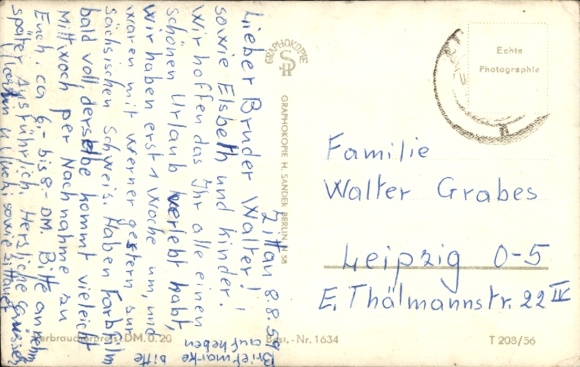 Zittau 8.8.59
Lieber Bruder Walter!
sowie Elsbeth und Kinder!
Wir hoffen das Ihr alle einen
schönen Urlaub verlebt habt,
Wir haben erst 1 Woche um, und
waren mit Werner gestern zur
sächsischen Schweis. Haben Farbfilm
bald voll derselbe kommt vieleicht
Mittwoch per Nachnahme zu
Euch. ca 6,- bis 8,- DM. Bitte annehm
später Ausführlich. Hersliche Grüsse
sowie Zittauer
Briefmarke bitte
aufheben
GRAPHOKOPIE
GRAPHOKOPIE H. SANDER BERLIN N 58
Echte
Photographie
Familie
Walter Grabes
Leipzig O-5
E. Thälmannstr. 22 IV
Verbraucherpreis DM. 0.20
Best.-Nr. 1634
T 208/56